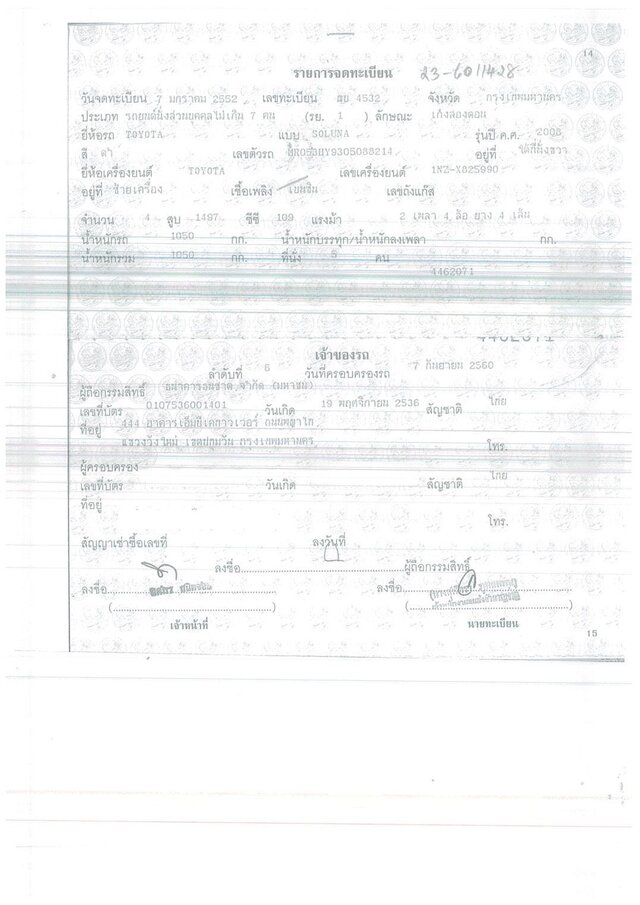 14
รายการจดทะเบียน 23-6011428
วันจดทะเบียน 7 มกราคม 2552 เลขทะเบียน 4532 จังหวัด กรุงเทพมหานคร
ประเภท รถยนต์นั่งส่วนบุคคลไม่เกิน 7 คน (รย. 1 ) ลักษณะ เก๋งสองตอน
ยี่ห้อรถ TOYOTA แบบ SOLUNA รุ่นปี ค.ศ. 2008
สี ดำ เลขตัวรถ อยู่ที่ ใต้ที่นั่งขวา
ยี่ห้อเครื่องยนต์ TOYOTA เลขเครื่องยนต์ 1NZ-X825990
อยู่ที่ ซ้ายเครื่อง เชื้อเพลิง เบนซิน เลขถังแก๊ส
จำนวน 4 สูบ 1497 ซีซี 109 แรงม้า 2 เพลา 4 ล้อ ยาง 4 เส้น
น้ำหนักรถ 1050 กก. น้ำหนักบรรทุก/น้ำหนักลงเพลา กก.
น้ำหนักรวม 1050 กก. ที่นั่ง 5 คน
4462071
4462071
เจ้าของรถ
ลำดับที่ 6 วันที่ครอบครองรถ 7 กันยายน 2560
ผู้ถือกรรมสิทธิ์ ธนาคารธนชาต จำกัด (มหาชน)
เลขที่บัตร 0107536001401 วันเกิด 19 พฤศจิกายน 2536 สัญชาติ ไทย
ที่อยู่ 444 อาคารเอ็มบีเคทาวเวอร์ ถนนพญาไท
แขวงวังใหม่ เขตปทุมวัน กรุงเทพมหานคร โทร.
ผู้ครอบครอง
เลขที่บัตร วันเกิด สัญชาติ ไทย
ที่อยู่
โทร.
สัญญาเช่าซื้อเลขที่ ลงวันที่
ลงชื่อ ผู้ถือกรรมสิทธิ์
ลงชื่อ ลงชื่อ
( ) ( )
เจ้าหน้าที่ นายทะเบียน
15